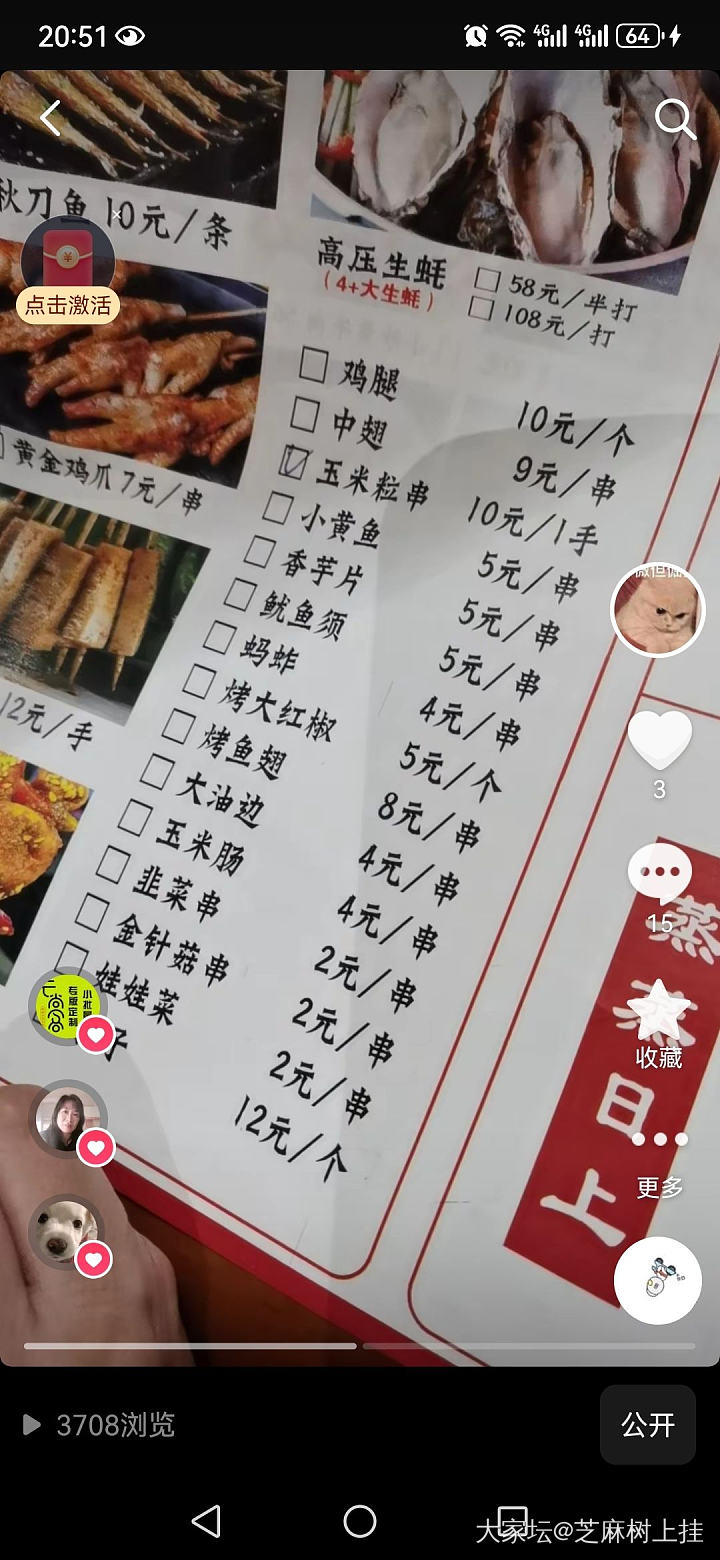 20:51
4G 4G 64
秋刀鱼 10元/条
点击激活
高压生蚝
(4+大生蚝)
58元/半打
108元/打
黄金鸡爪 7元/串
12元/手
鸡腿 10元/个
中翅 9元/串
玉米粒串 10元/1手
小黄鱼 5元/串
香芋片 5元/串
鱿鱼须 5元/串
蚂蚱 4元/串
烤大红椒 5元/个
烤鱼翅 8元/串
大油边 4元/串
玉米肠 4元/串
韭菜串 2元/串
金针菇串 2元/串
娃娃菜 2元/串
子 12元/个
蒸
蒸
日
上
3
15
收藏
更多
专版定制
3708浏览
公开
大家坛@芝麻树上挂